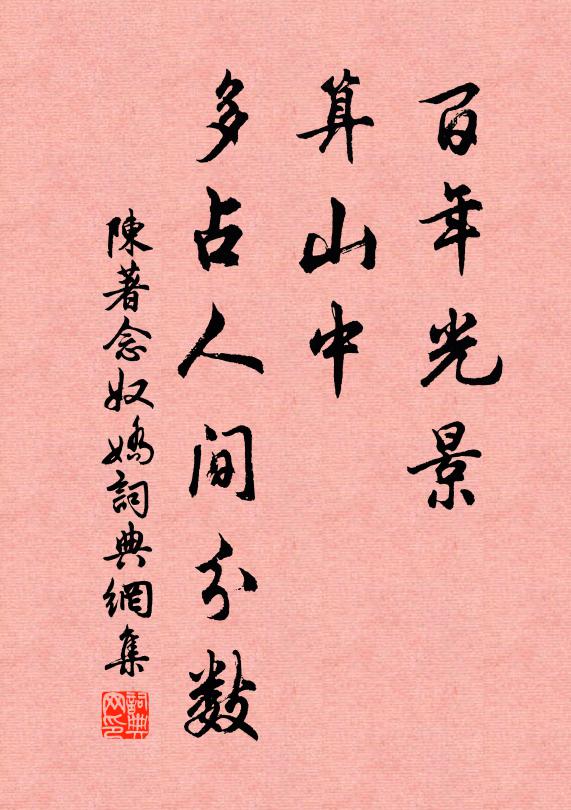 百年光景
算山中
多占人间分数
陳著念奴嬌詞典網集
詞典网印